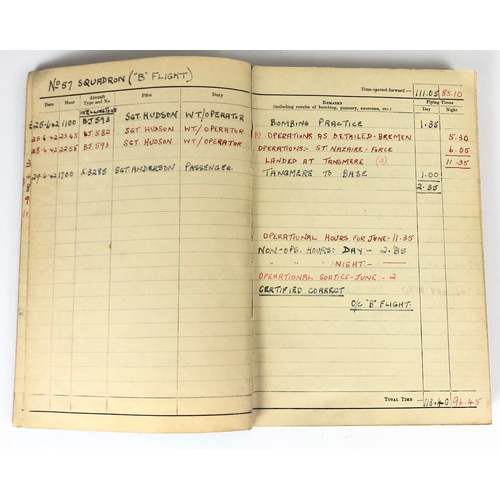 No 57 SQUADRON ("B" FLIGHT)
Date Hour Aircraft Type and No. Pilot Duty
WELLINGTONS
25-6-42 1100 BJ593 SGT HUDSON WT/OPERATOR
25-6-42 2345 BJ582 SGT HUDSON WT/OPERATOR
28-6-42 2355 BJ593 SGT HUDSON WT/OPERATOR
29-6-42 1700 X3285 SGT ANDERSON PASSENGER
Time carried forward :— 111.05 85.10
REMARKS
(including results of bombing, gunnery, exercises, etc.)
Flying Times
Day Night
BOMBING PRACTICE 1.35
(1) OPERATIONS AS DETAILED-BREMEN 5.30
OPERATIONS:- ST. NAZAIRE-FORCE 6.05
LANDED AT TANGMERE (2) 11.35
TANGMERE TO BASE 1.00
2.35
OPERATIONAL HOURS FOR JUNE:- 11.35
NON-OPS. HOURS: DAY - 2.35
" " " NIGHT. -
OPERATIONAL SORTIES-JUNE - 2
CERTIFIED CORRECT
O/C "B" FLIGHT.
TOTAL TIME 113.40 96.45